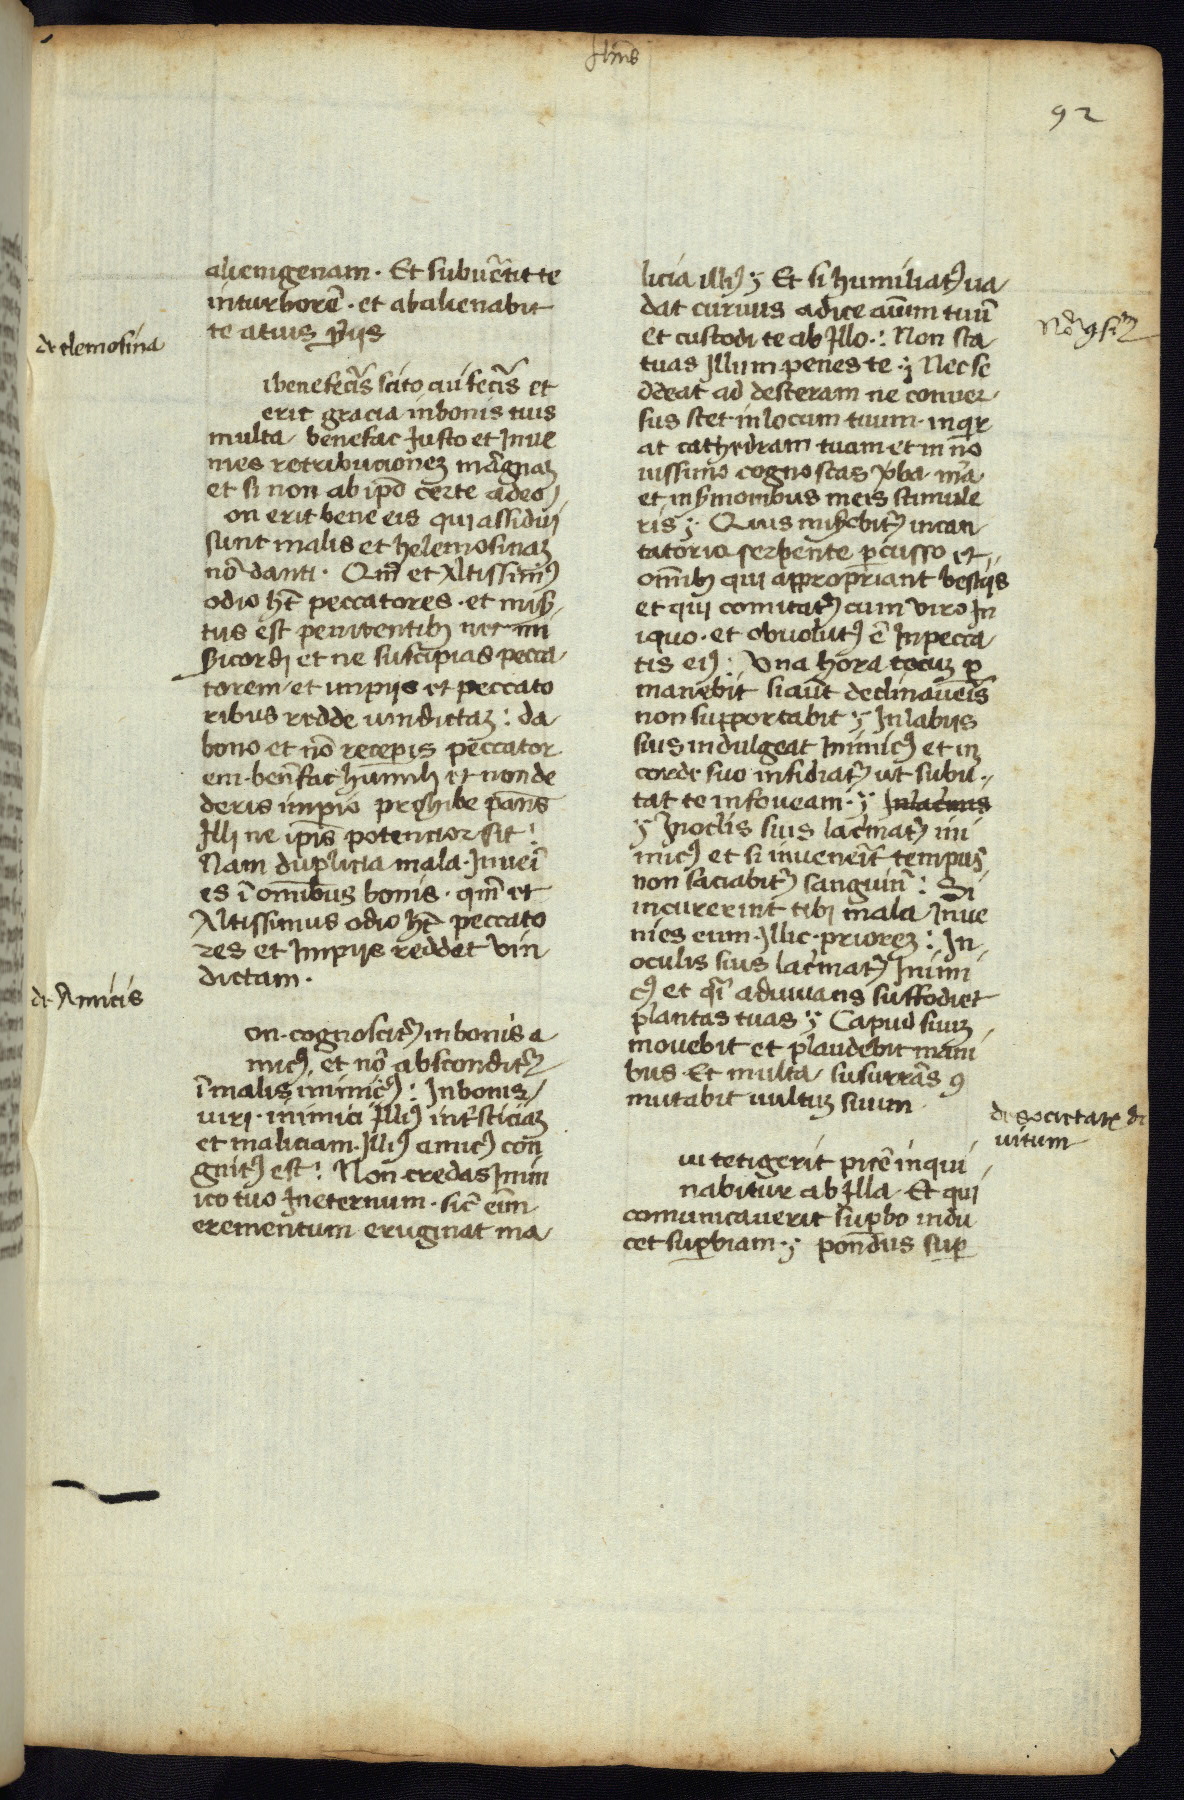 92
alienigenam · Et subuētit te
in turborē · et abalienabit
te a tuis ꝓpijs
de elemosina
i benefecīs scito cui fecīs et
erit gracia in bonis tuis
multa / benefac Justo et Inue
nies retribucionez māgnaz
et si non ab ipō certe a deo
on erit bene eis qui assidui
sunt malis et helemosinaz
nō danti · Qm̄ et Altissimꝰ
odio hꝫ peccatores · et mis̄
tus est penitentibꝫ
bicordi et ne suscipias pecca
torem / et impijs et peccato
ribus redde uindictaz : da
bono et nō receperis peccator
em · benēfac humili et non de
deris impio prohibe panēs
Illi ne ipīs potencior sit :
Nam duplicia mala · Inueī
es ī omnibus bonis · qm̄ et
Altissimus odio hꝫ peccato
res et Impijs reddet vin
dictam ·
de Amicis
on · cognoscit᷑ in bonis a
micꝰ et nō abscondit᷑
ī malis inimicꝰ : In bonis /
viri · inimici Illiꝰ int᷑sticiaz
et maliciam · Illiꝰ amicꝰ con
gnitꝰ est : Non credas Inim
ico tuo In eternum · sic̄ eīm
erementum eruginat ma /
licia illiꝰ ÿ Et si humiliatꝰ ua /
dat curuus adice aīum tuū
et custodi te ab Illo · : Non sta
tuas Illum penes te · ÿ Nec se
deat ad desteram ne conuer /
sus stet in locum tuum · inqr
at cathedram tuam et in no
uissimo cognoscas v̄ba · m̄a
et in s̄monibus meis stimule
ris ÿ · Quis mis̄ebit᷑ incan
tatorio serpente ꝑcusso et /
omībꝫ qui appropriant bestijs
et qui comitat᷑ cum viro In
iquo · et obuolutꝰ ē In pecca
tis eiꝰ : Vna hora tecuz ꝑ
manebit si aūt declinaueīs
non supportabit ÿ In labijs
suis indulgeat Inimicꝰ et in
corde suo insidiat᷑ ut subu ·
tat te in foueam · ÿ
ÿ In oclis suis lac̄mat᷑ ini
micꝰ et si inuenerīt tempus
non saciabit᷑ sanguīn : Si
incurerint tibi mala Inue
nies eum · Illic · priorez : In
oculis suis lac̄mat᷑ Inimi
cꝰ et q̄i adiuuans suffodiet
plantas tuas ÿ Capud suuz /
mouebit et plaudebit mani
bus · Et multa / susurrās ꝯ
mutabit uultuz suum
de societate di
uitum
ui tetigerit picē inqui /
nabitur ab Illa · Et qui
comunicauerit suꝑbo indu
cet suꝑbiam · ÿ pondus suꝑ